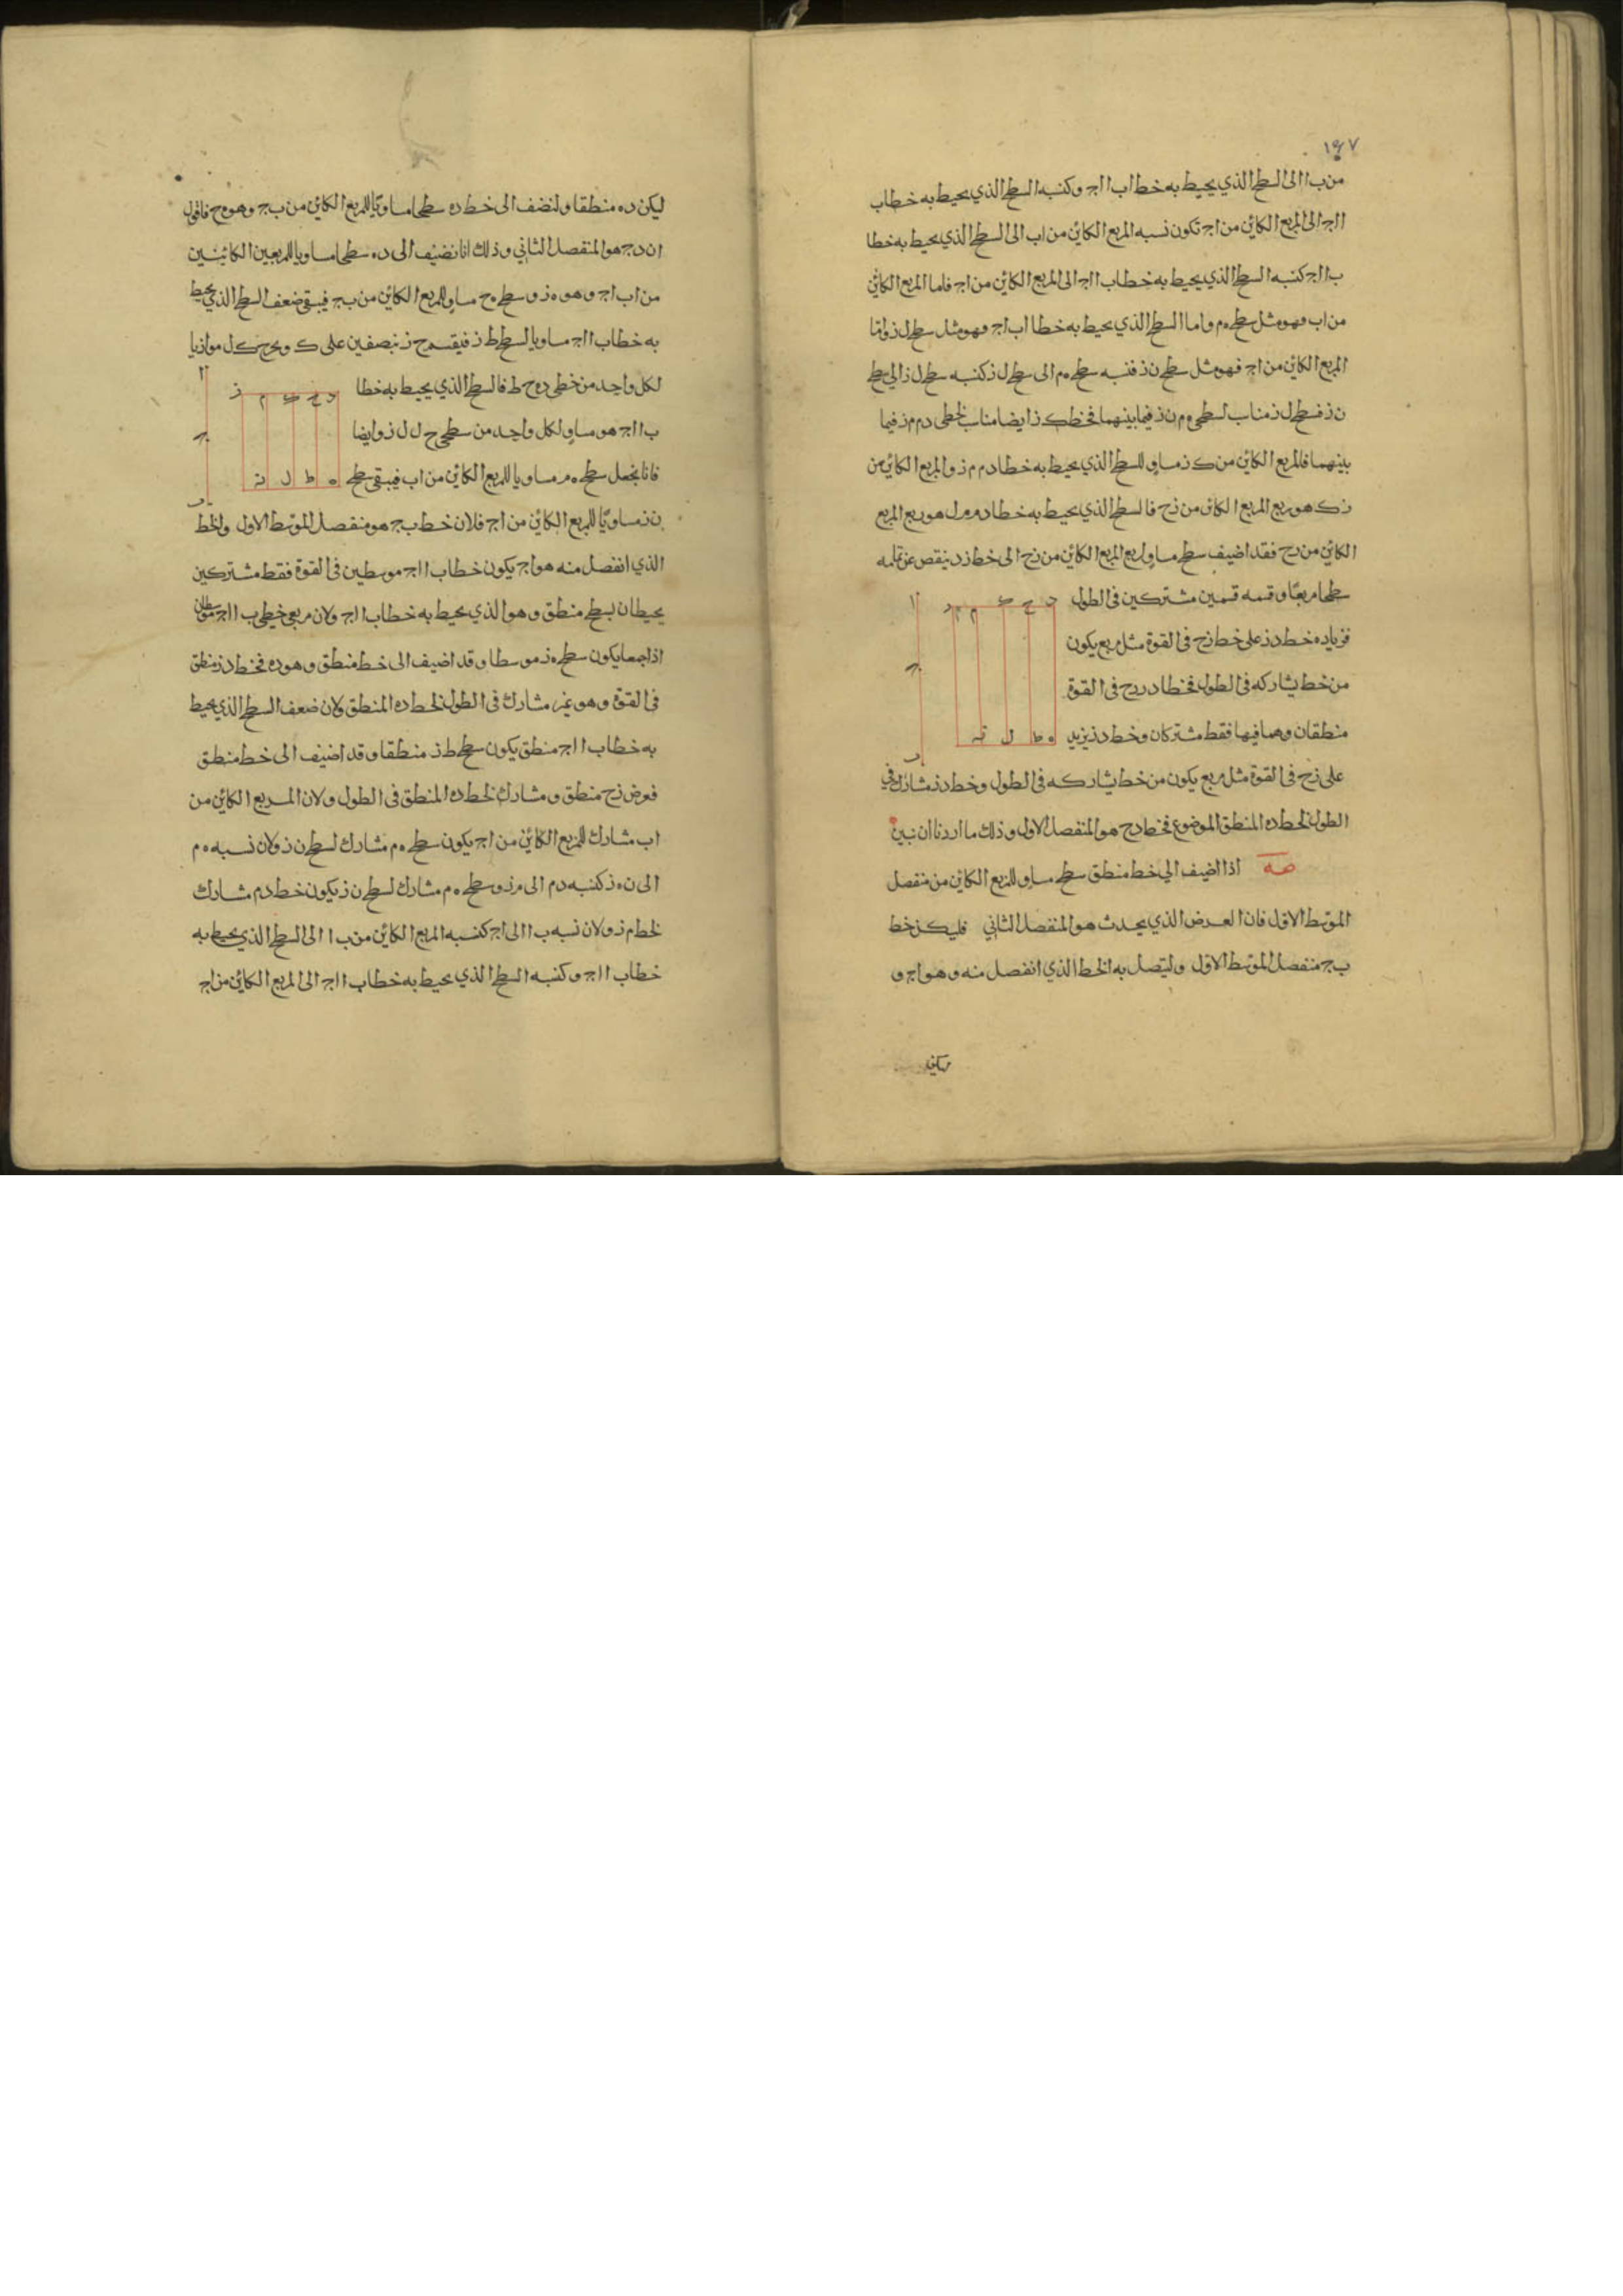 ١٩٧
من ب ا الى السطح الذي يحيط به خطا ب ا ا ج وكنسبه السطح الذي يحيط به خطا ب
ا ا ج الى المربع الكائن من ا ج تكون نسبه المربع الكائن من ا ب الى السطح الذي يحيط به خطا
ب ا ا ج كنسبه السطح الذي يحيط به خطا ب ا ا ج الى المربع الكائن من ا ج فاما المربع الكائن
من ا ب فهو مثل سطح ه م واما السطح الذي يحيط به خطا ا ب ا ج فهو مثل سطح ل ز واما
المربع الكائن من ا ج فهو مثل سطح ن ز فنسبه سطح ه م الى سطح ل ز كنسبه سطح ل ز الى سطح
ن ز فسطح ل ز مناسب لسطحي ه م ن ز فيما بينهما فخط ك ز ايضا مناسب لخطي د م م ز فيما
بينهما فالمربع الكائن من ك ز مساو للسطح الذي يحيط به خطا د م م ز والمربع الكائن من
ز ك هو ربع المربع الكائن من ز ح فالسطح الذي يحيط به خطا د م م ل هو ربع المربع
الكائن من ز ح فقد اضيف سطح مساو لربع المربع الكائن من ز ح الى خط ز د ينقص عن تمامه
سطحا مربعا وقسمه قسمين مشتركين في الطول
فزياده خط د ز على خط ز ح في القوة مثل مربع يكون
من خط يشاركه في الطول فخطا د ز ز ح في القوة
منطقان وهما فيها فقط مشتركان وخط د ز يزيد
على ز ح في القوة مثل مربع يكون من خط يشاركه في الطول وخط د ز مشارك في
الطول لخط د ه المنطق الموضوع فخط د ح هو المنفصل الاول وذلك ما اردنا ان نبين
صه اذا اضيف الي خط منطق سطح مساو للمربع الكائن من منفصل
الموسط الاول فان العرض الذي يحدث هو المنفصل الثاني فليكن خط
ب ج منفصل الموسط الاول وليتصل به الخط الذي انفصل منه وهو ا ج و
د ح ك م ز
ه ط ل ن
ا
ج
ب
ليكن د ه منطقا ولنضف الى خط د ه سطحا مساويا للمربع الكائن من ب ج وهو ه ح فاقول
ان د ح هو المنفصل الثاني وذلك انا نضيف الى د ه سطحا مساويا للمربعين الكائنين
من ا ب ا ج وهو ه ز وسطح ه ح مساو للمربع الكائن من ب ج فيبقى ضعف السطح الذي يحيط
به خطا ب ا ا ج مساويا لسطح ط ز فيقسم ح ز بنصفين على ك ويخرج ك ل موازيا
لكل واحد من خطي د ه ح ط فالسطح الذي يحيط به خطا
ب ا ا ج هو مساو لكل واحد من سطحي ح ل ل ز وايضا
فانا نجعل سطح ه م مساويا للمربع الكائن من ا ب فيبقى سطح
ن ز مساويا للمربع الكائن من ا ج فلان خط ب ج هو منفصل الموسط الاول والخط
الذي انفصل منه هو ا ج يكون خطا ب ا ا ج موسطين في القوة فقط مشتركين
يحيطان بسطح منطق وهو الذي يحيط به خطا ب ا ا ج ولان مربعي خطي ب ا ا ج موسطان
اذا جمعا يكون سطح ه ز موسطا وقد اضيف الى خط منطق وهو د ه فخط د ز منطق
في القوة وهو غير مشارك في الطول لخط د ه المنطق ولان ضعف السطح الذي يحيط
به خطا ب ا ا ج منطق يكون سطح ط ز منطقا وقد اضيف الى خط منطق
فعرض ز ح منطق ومشارك لخط د ه المنطق في الطول ولان المربع الكائن من
ا ب مشارك للمربع الكائن من ا ج يكون سطح ه م مشارك لسطح ن ز ولان نسبه ه م
الى ن ز كنسبه د م الى م ز وسطح ه م مشارك لسطح ن ز يكون خط د م مشارك
لخط م ز ولان نسبه ب ا الى ا ج كنسبه المربع الكائن من ب ا الى السطح الذي يحيط به
خطا ب ا ا ج وكنسبه السطح الذي يحيط به خطا ب ا ا ج الى المربع الكائن من ا ج
د ح ك م ز
ه ط ل ن
ا
ج
ب